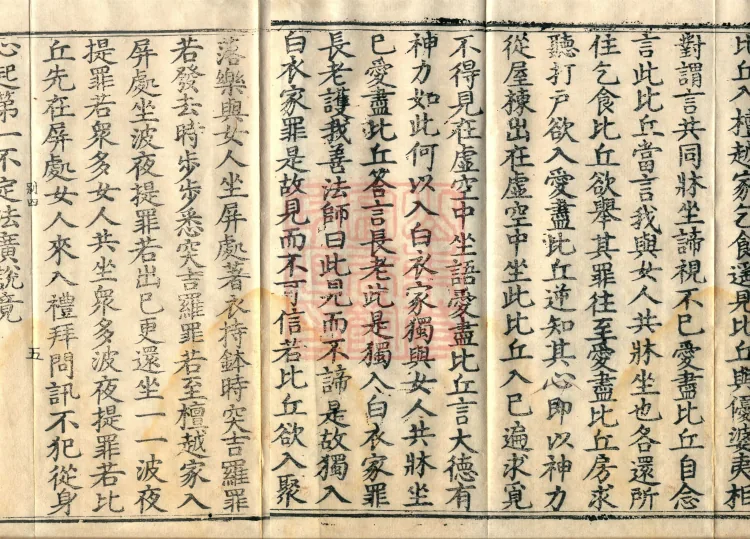 比丘入檀越家乞食還見比丘與優婆夷相
對謂言共同牀坐諦視不已愛盡比丘自念
言此比丘當言我與女人共牀坐也各還所
住乞食比丘欲舉其罪往至愛盡比丘房求
聽打戶欲入愛盡比丘逆知其心即以神力
從屋棟出在虛空中坐此比丘入已遍求覓
不得見在虛空中坐語愛盡比丘言大德有
神力如此何以入白衣家獨與女人共牀坐
已愛盡比丘荅言長老此是獨入白衣家罪
長老護我善法師曰此見而不諦是故獨入
白衣家罪是故見而不可信若比丘欲入聚
落樂與女人坐屏處著衣持鉢時突吉羅罪
若發去時步步悉突吉羅罪若至檀越家入
屏處坐波夜提罪若出已更還坐一一波夜
提罪若眾多女人共坐眾多波夜提罪若比
丘先在屏處女人來入禮拜問訊不犯從身
四
五
心起第一不定法廣說竟